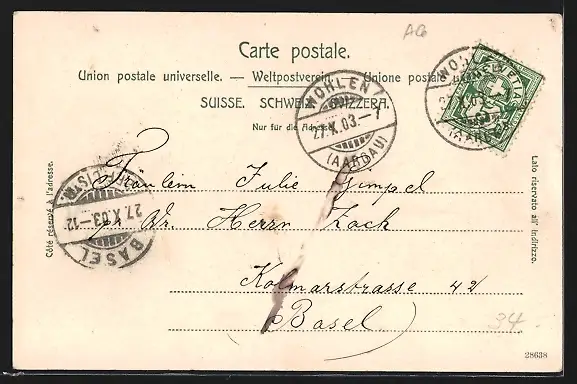 AG
Carte postale.
Union postale universelle. — Weltpostverein. — Unione postale
SUISSE. SCHWEIZ. SVIZZERA.
Nur für die Adresse.
WOHLEN
27.X.03.–1
(AARGAU)
WOHLEN
X.03
(AARGAU)
HELVETIA
Fräulein Julie Gimpel
Adr. Herrn Zach
Kolmarstrasse 42
Basel
BASEL
27.X.03.–12
Côté réservé à l'adresse.
Lato riservato all' indirizzo.
34
28638